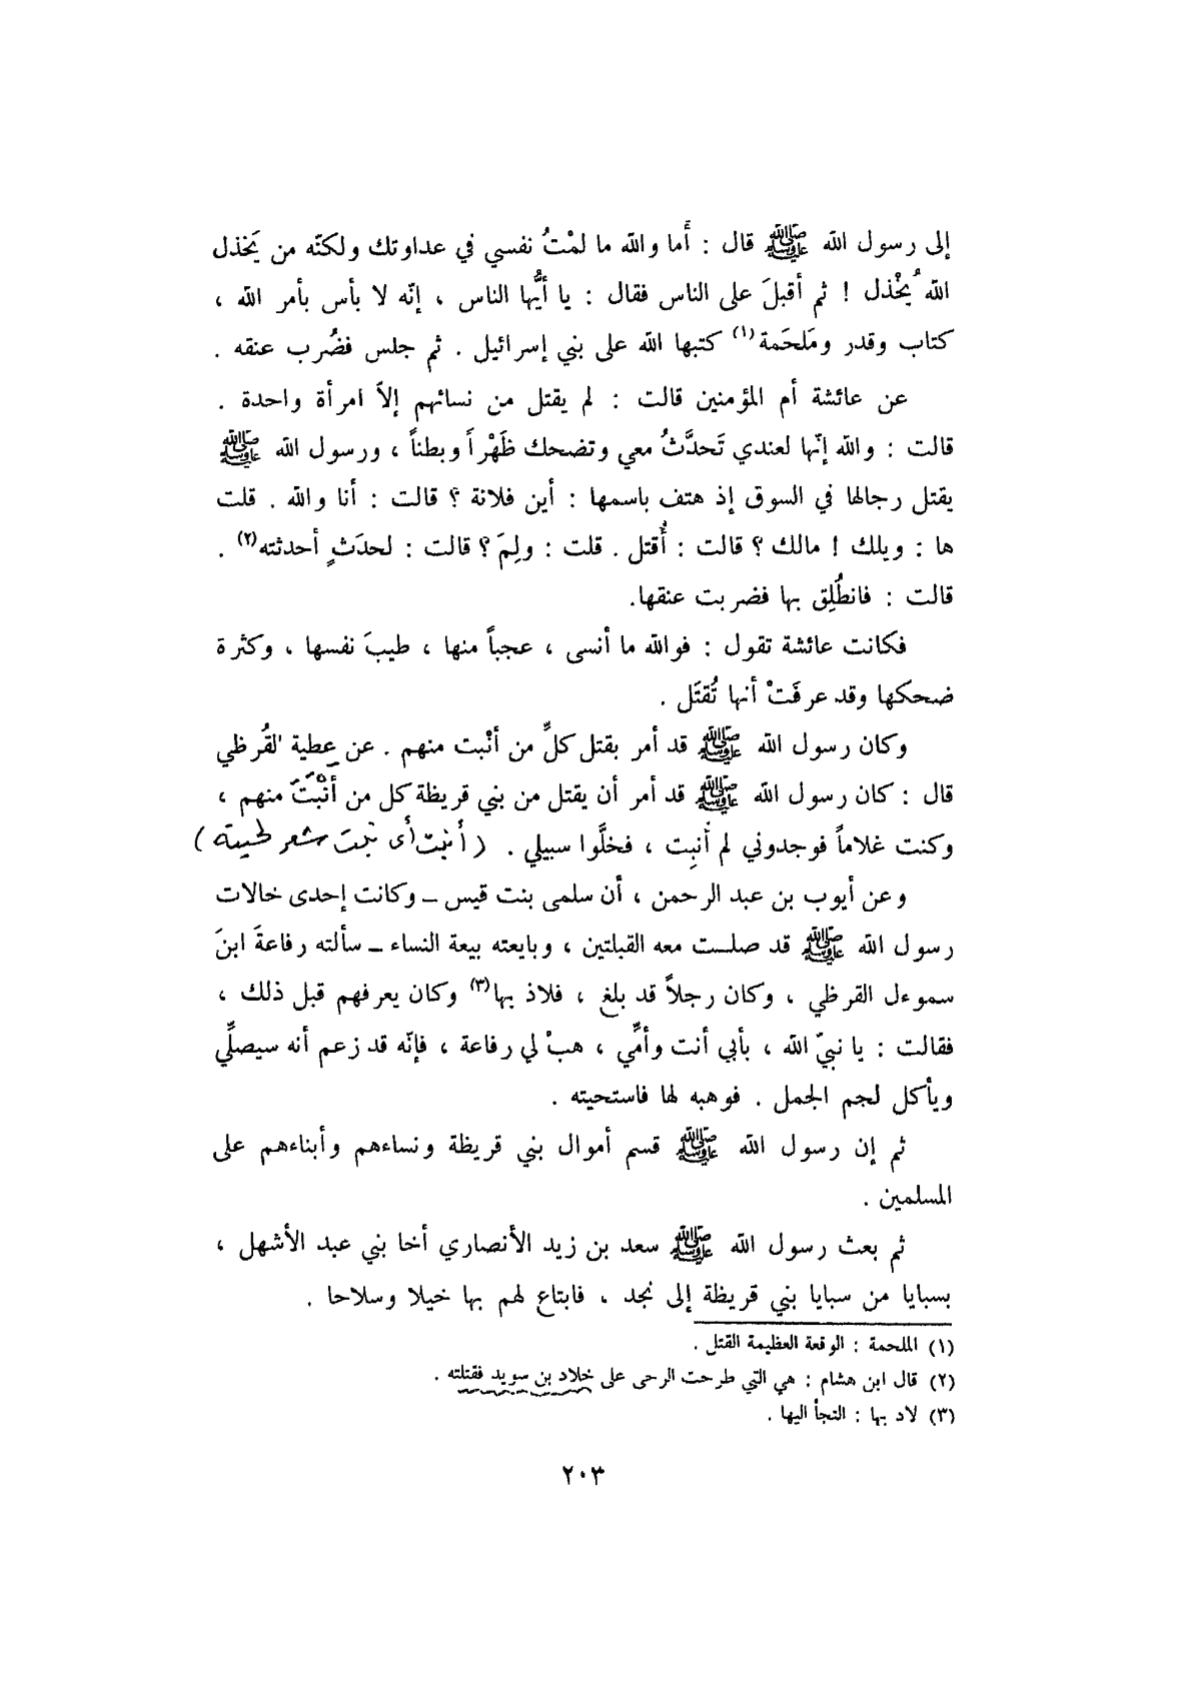 إلى رسول الله ﷺ قال : أَما والله ما لمْتُ نفسي في عداوتك ولكنّه من يَخذل
اللهُ يُخْذل ! ثم أقبلَ على الناس فقال : يا أيُّها الناس ، إنّه لا بأس بأمر الله ،
كتاب وقدر ومَلحَمة(١) كتبها الله على بني إسرائيل . ثم جلس فضُرب عنقه .
عن عائشة أم المؤمنين قالت : لم يقتل من نسائهم إلاّ امرأة واحدة .
قالت : والله إنّها لعندي تَحدَّثُ معي وتضحك ظَهْراً وبطناً ، ورسول الله ﷺ
يقتل رجالها في السوق إذ هتف باسمها : أين فلانة ؟ قالت : أنا والله . قلت
ها : ويلك ! مالك ؟ قالت : أُقتل . قلت : ولِمَ ؟ قالت : لحدَثٍ أحدثته(٢) .
قالت : فانطُلِق بها فضربت عنقها.
فكانت عائشة تقول : فوالله ما أنسى ، عجباً منها ، طيبَ نفسها ، وكثرة
ضحكها وقد عرفَتْ أنها تُقتَل .
وكان رسول الله ﷺ قد أمر بقتل كلِّ من أنْبت منهم . عن عطية القُرظي
قال : كان رسول الله ﷺ قد أمر أن يقتل من بني قريظة كل من أنْبَتَ منهم ،
وكنت غلاماً فوجدوني لم أُنبِت ، فخلَّوا سبيلي . ( أنبت أى نبت شعر لحيته )
وعن أيوب بن عبد الرحمن ، أن سلمى بنت قيس ــ وكانت إحدى خالات
رسول الله ﷺ قد صلت معه القبلتين ، وبايعته بيعة النساء ــ سألته رفاعةَ ابنَ
سموءل القرظي ، وكان رجلاً قد بلغ ، فلاذ بها(٣) وكان يعرفهم قبل ذلك ،
فقالت : يا نبيّ الله ، بأبي أنت وأمِّي ، هبْ لي رفاعة ، فإنّه قد زعم أنه سيصلِّي
ويأكل لجم الجمل . فوهبه لها فاستحيته .
ثم إن رسول الله ﷺ قسم أموال بني قريظة ونساءهم وأبناءهم على
المسلمين .
ثم بعث رسول الله ﷺ سعد بن زيد الأنصاري أخا بني عبد الأشهل ،
بسبايا من سبايا بني قريظة إلى نجد ، فابتاع لهم بها خيلا وسلاحا .
(١) الملحمة : الوقعة العظيمة القتل .
(٢) قال ابن هشام : هي التي طرحت الرحى على خلاد بن سويد فقتلته .
(٣) لاد بها : التجأ اليها .
٢٠٣